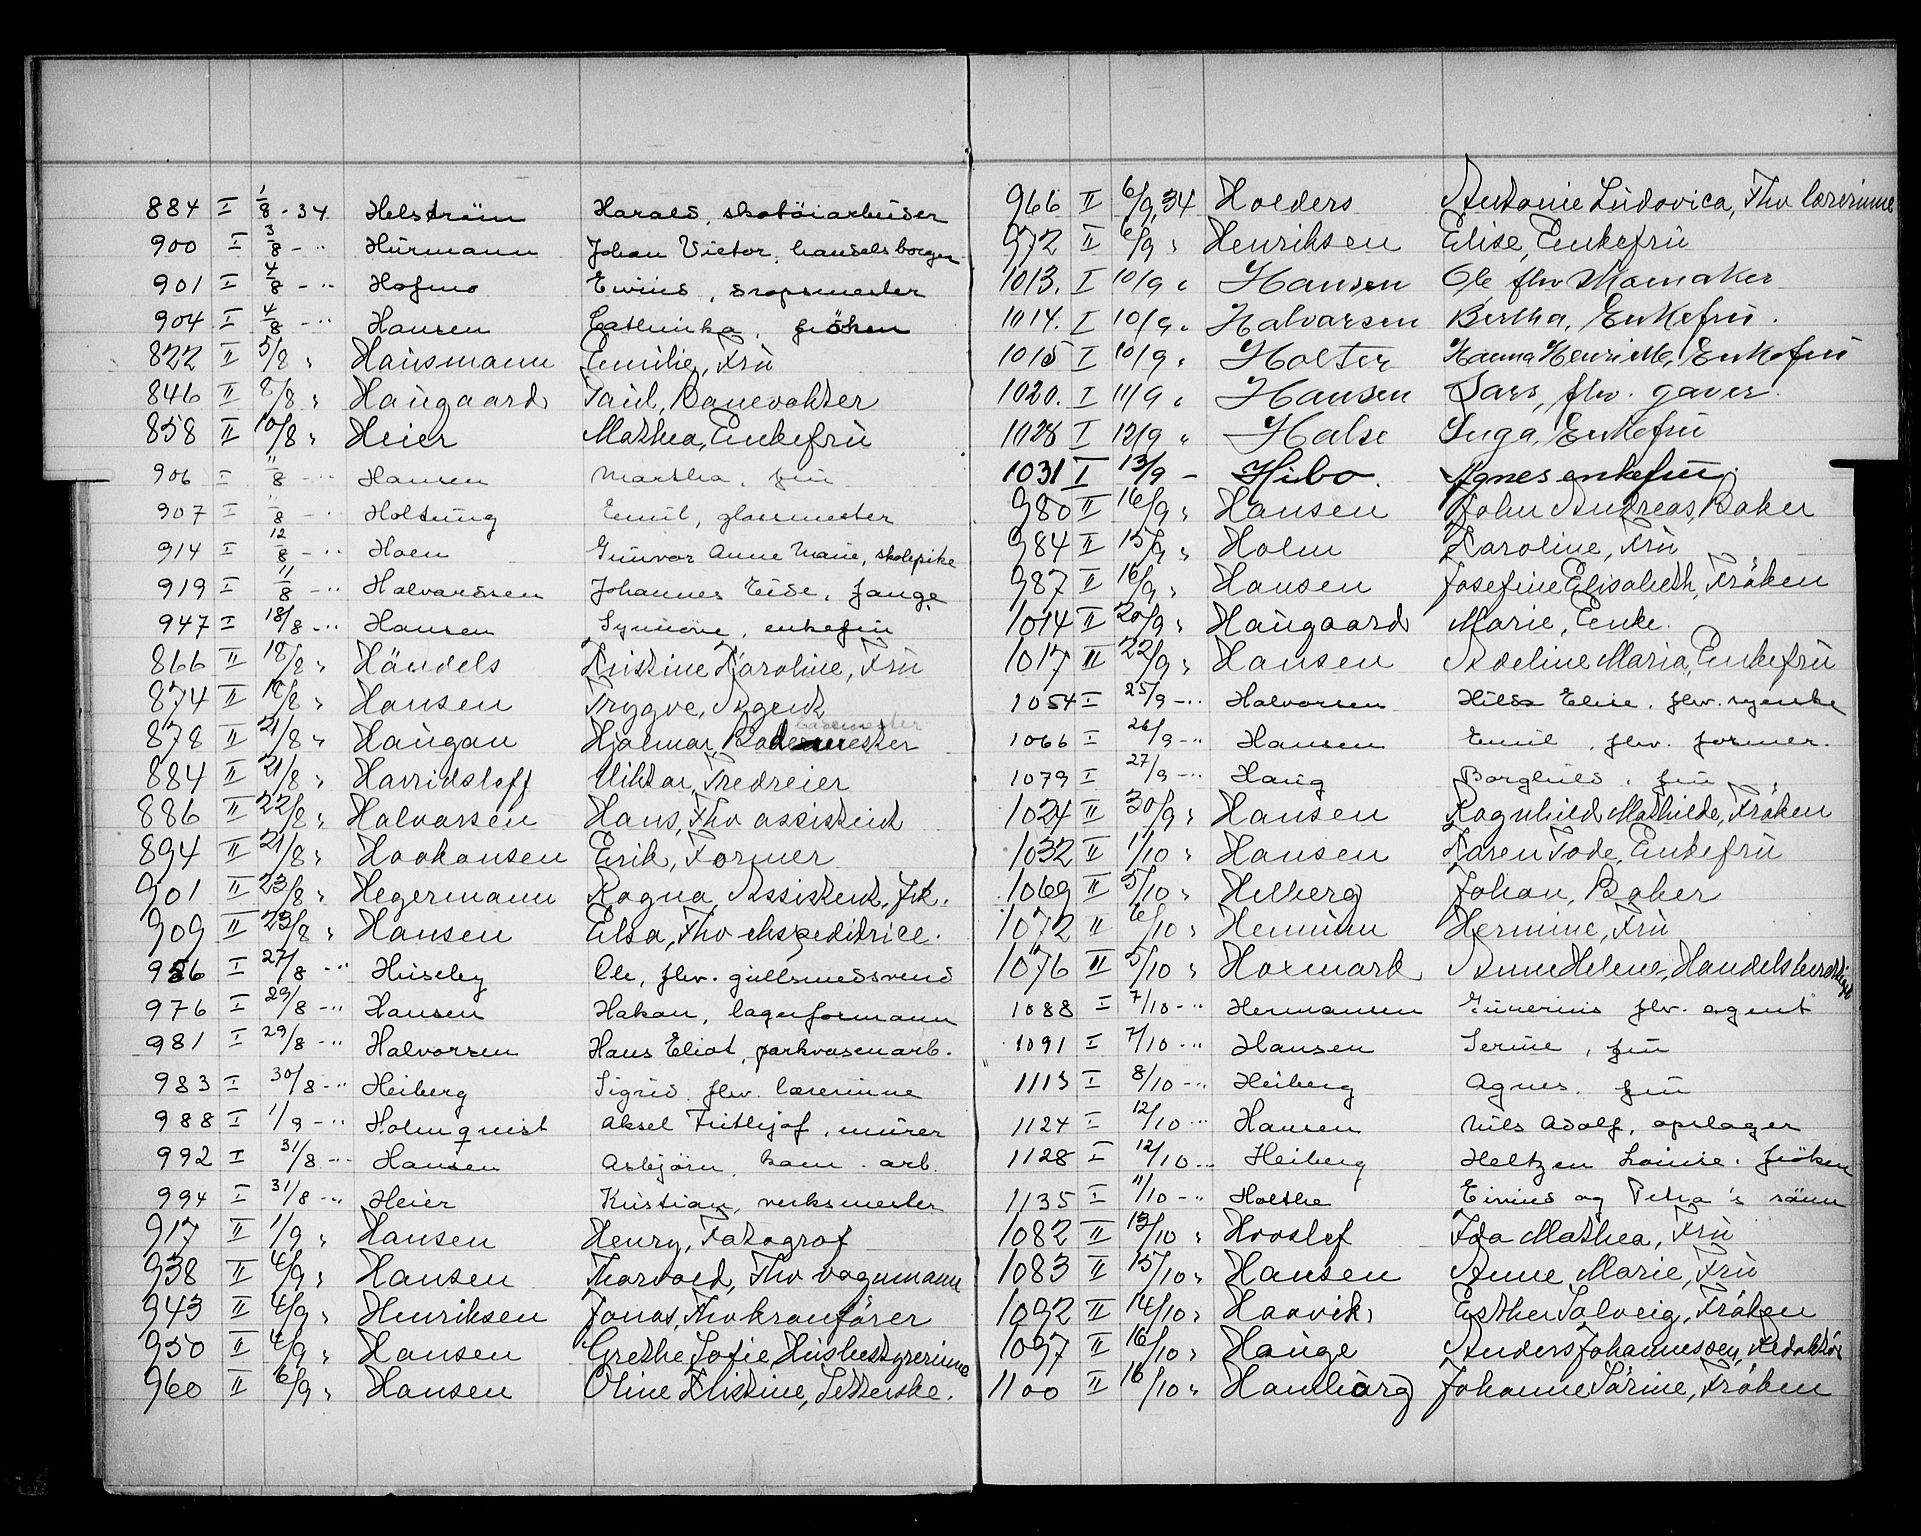 884 I 1/8 - 34 Helström Harald, skotöiarbeider
900 I 3/8 - " Hurmann Johan Victor, handelsborger
901 I 4/8 - " Hofmo Eivind, dropsmester
904 I 4/8 - " Hansen Cathinka, fröken
822 II 5/8 " Hausmann Emilie, Frù
846 II 8/8 " Haugaard Paul, Banevokter
858 II 10/8 " Heier Mathea, Enkefrù
906 I 11/8 - " Hansen Martha, frù
907 I 11/8 - " Holtung Emil, glassmester
914 I 12/8 - " Hoen Gunvor Anne Marie, skolepike
919 I 11/8 - " Halvordsen Johannes Eide, fange
947 I 18/8 - " Hansen Synnöve, enkefrù
866 II 18/8 " Händels Kristine Karoline, Frù
874 II 18/8 " Hansen Trygve, Agent
878 II 21/8 " Haugan Hjalmar, Bademester
884 II 21/8 " Havridsloff Viktor, Tredreier
886 II 22/8 " Halvorsen Hans, Fhv assistent
894 II 21/8 " Haakonsen Erik, Former
901 II 23/8 " Hegermann Ragna, Assistent, Fk.
909 II 23/8 " Hansen Elsa, Fhv ekspeditrice.
956 I 27/8 - " Huseby Ole, fhv. gullsmedsvend
976 I 29/8 - " Hansen Hakon, lagerformann
981 I 29/8 - " Halvorsen Hans Eliot, parkvasenarb.
983 I 30/8 - " Heiberg Sigrid, fhv. lærerinne
988 I 1/9 - " Holmquist Aksel Frithjof, murer
992 I 31/8 - " Hansen Asbjörn, kom. arb.
994 I 31/8 - " Heier Kristian, verksmester
917 II 1/9 " Hansen Henry, Fotograf
938 II 4/9 " Hansen Thorvald, Fhv vognmann
943 II 4/9 " Henriksen Jonas, Fhv kranförer
950 II 4/9 " Hansen Grethe Sofie, Husbestyrerinne
960 II 6/9 " Hansen Oline Kristine, Setterske.
966 II 6/9 34 Holders Antonie Ludovica, Fhv lærerinne
972 II 6/9 " Henriksen Elise, Enkefrù
1013. I 10/9 " Hansen Ole fhv
1014. I 10/9 " Halvorsen Bertha, Enkefrù.
1015 I 10/9 " Holter Hanna Henriette, Enkefrù
1020. I 11/9 " Hansen Lars, fhv. gaver.
1028 I 12/9 " Halse Inga, Enkefrù
1031 I 13/9 - Hibo. Agnes enkefrù.
980 II 16/9 " Hansen John Andreas, Baker
984 II 15/9 " Holm Karoline, Frù
987 II 16/9 " Hansen Josefine Elisabeth, Fröken
1014 II 20/9 " Haugaard Marie, Enke.
1017 II 22/9 " Hansen Adeline Maria, Enkefrù
1054 I 25/9 - " Halvorsen Hilda Elise, fhv. syerske
1066 I 26/9 - " Hansen Emil, fhv. former.
1079 I 27/9 - " Haug Borghild, frù
1024 II 30/9 " Hansen Ragnhild Mathilde, Fröken
1032 II 1/10 " Hansen Karen Tode, Enkefrù
1069 II 5/10 " Helberg Johan, Baker
1072 II 6/10 " Hennum Hermine, Frù
1076 II 5/10 " Hoxmark Anne Helene,
1088 I 7/10 - " Hermansen Gunerius fhv. agent
1091 I 7/10 - " Hansen Serine, frù
1113 I 8/10 - " Heiberg Agnes, frù
1124 I 12/10 - " Hansen Nils Adolf, oplager
1128 I 12/10 - " Heiberg Heltzen Louise, fröken
1135 I 11/10 - " Holthe Eivind og Petra's sönn
1082 II 13/10 " Hovslef Ida Mathea, Frù
1083 II 15/10 " Hansen Anne Marie, Frù
1092 II 14/10 " Haavik Esther Solveig, Fröken
1097 II 16/10 " Hauge Anders Johannessen, Redaktör
1100 II 16/10 " Hamburg Johanne Sörine, Fröken